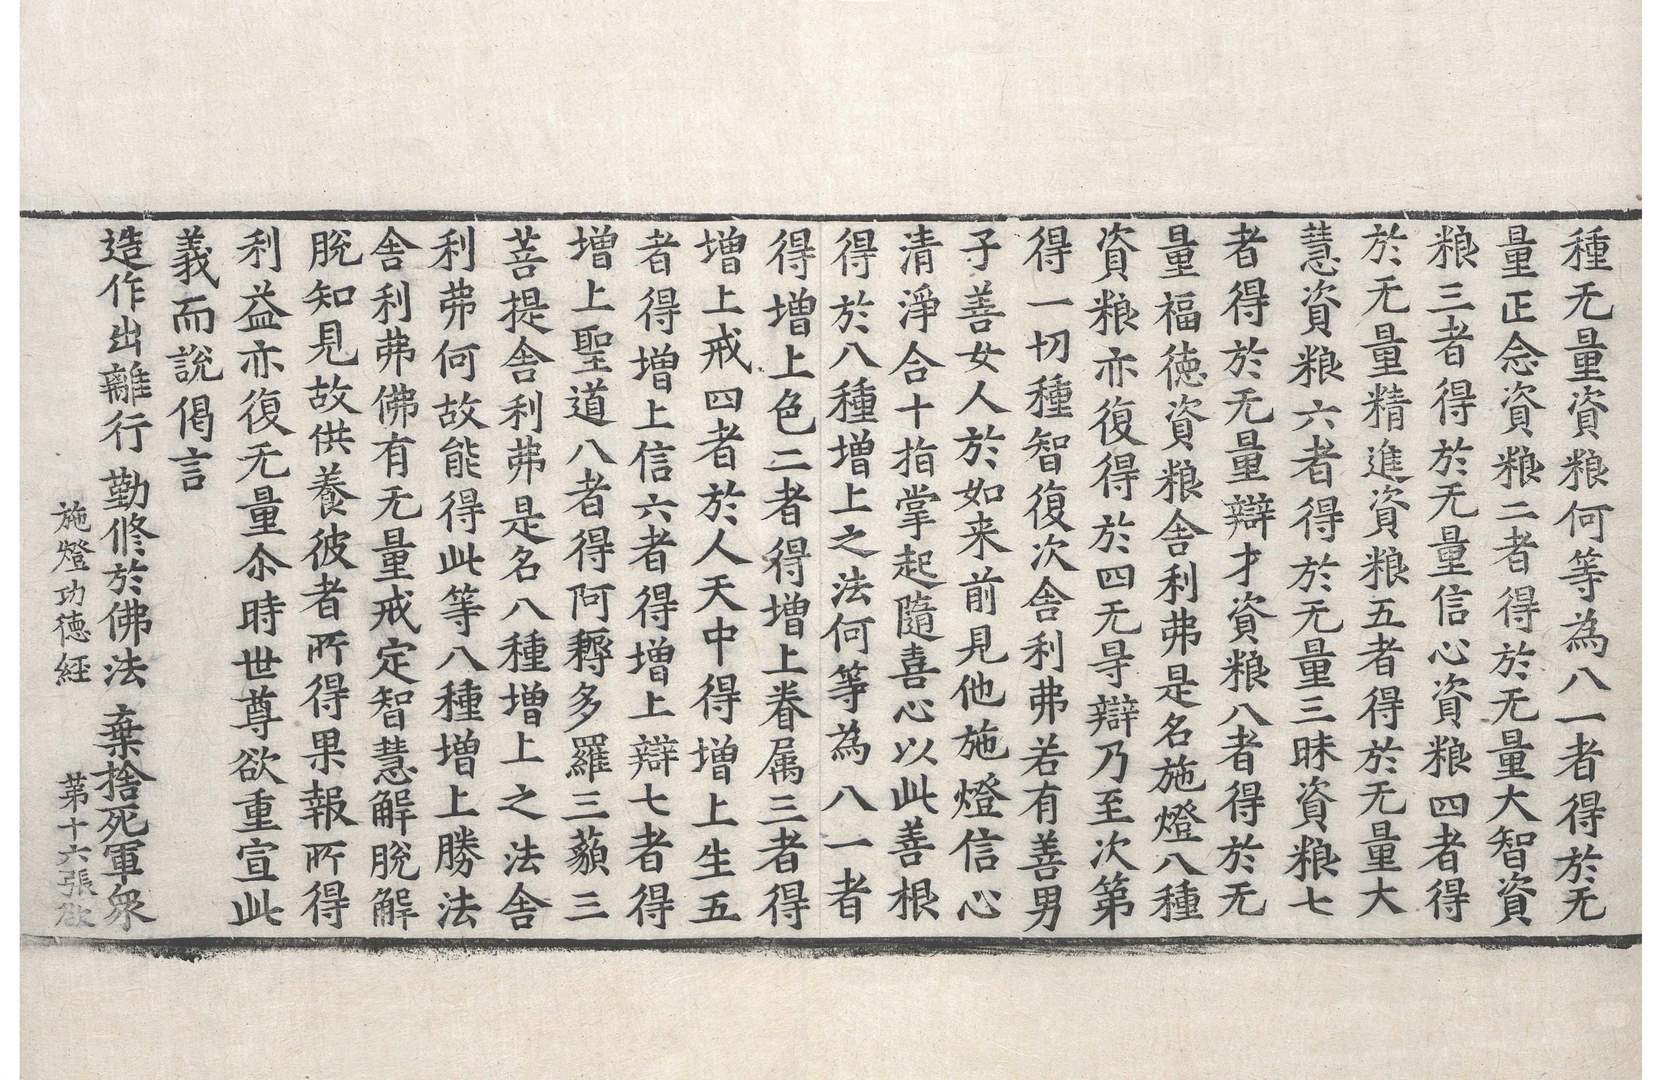 種无量資粮何等為八一者得於无
量正念資粮二者得於无量大智資
粮三者得於无量信心資粮四者得
於无量精進資粮五者得於无量大
慧資粮六者得於无量三昧資粮七
者得於无量辯才資粮八者得於无
量福徳資粮舎利弗是名施燈八種
資粮亦復得於四无㝵辯乃至次第
得一切種智復次舎利弗若有善男
子善女人於如来前見他施燈信心
清淨合十指掌起隨喜心以此善根
得於八種增上之法何等為八一者
得增上色二者得增上眷属三者得
增上戒四者於人天中得增上生五
者得增上信六者得增上辯七者得
增上聖道八者得阿耨多羅三藐三
菩提舎利弗是名八種增上之法舎
利弗何故能得此等八種增上勝法
舎利弗佛有无量戒定智慧解脫解
脫知見故供養彼者所得果報所得
利益亦復无量尒時世尊欲重宣此
義而說偈言
造作出離行 勤修於佛法 棄捨死軍衆
施燈功德経 苐十六張 欲